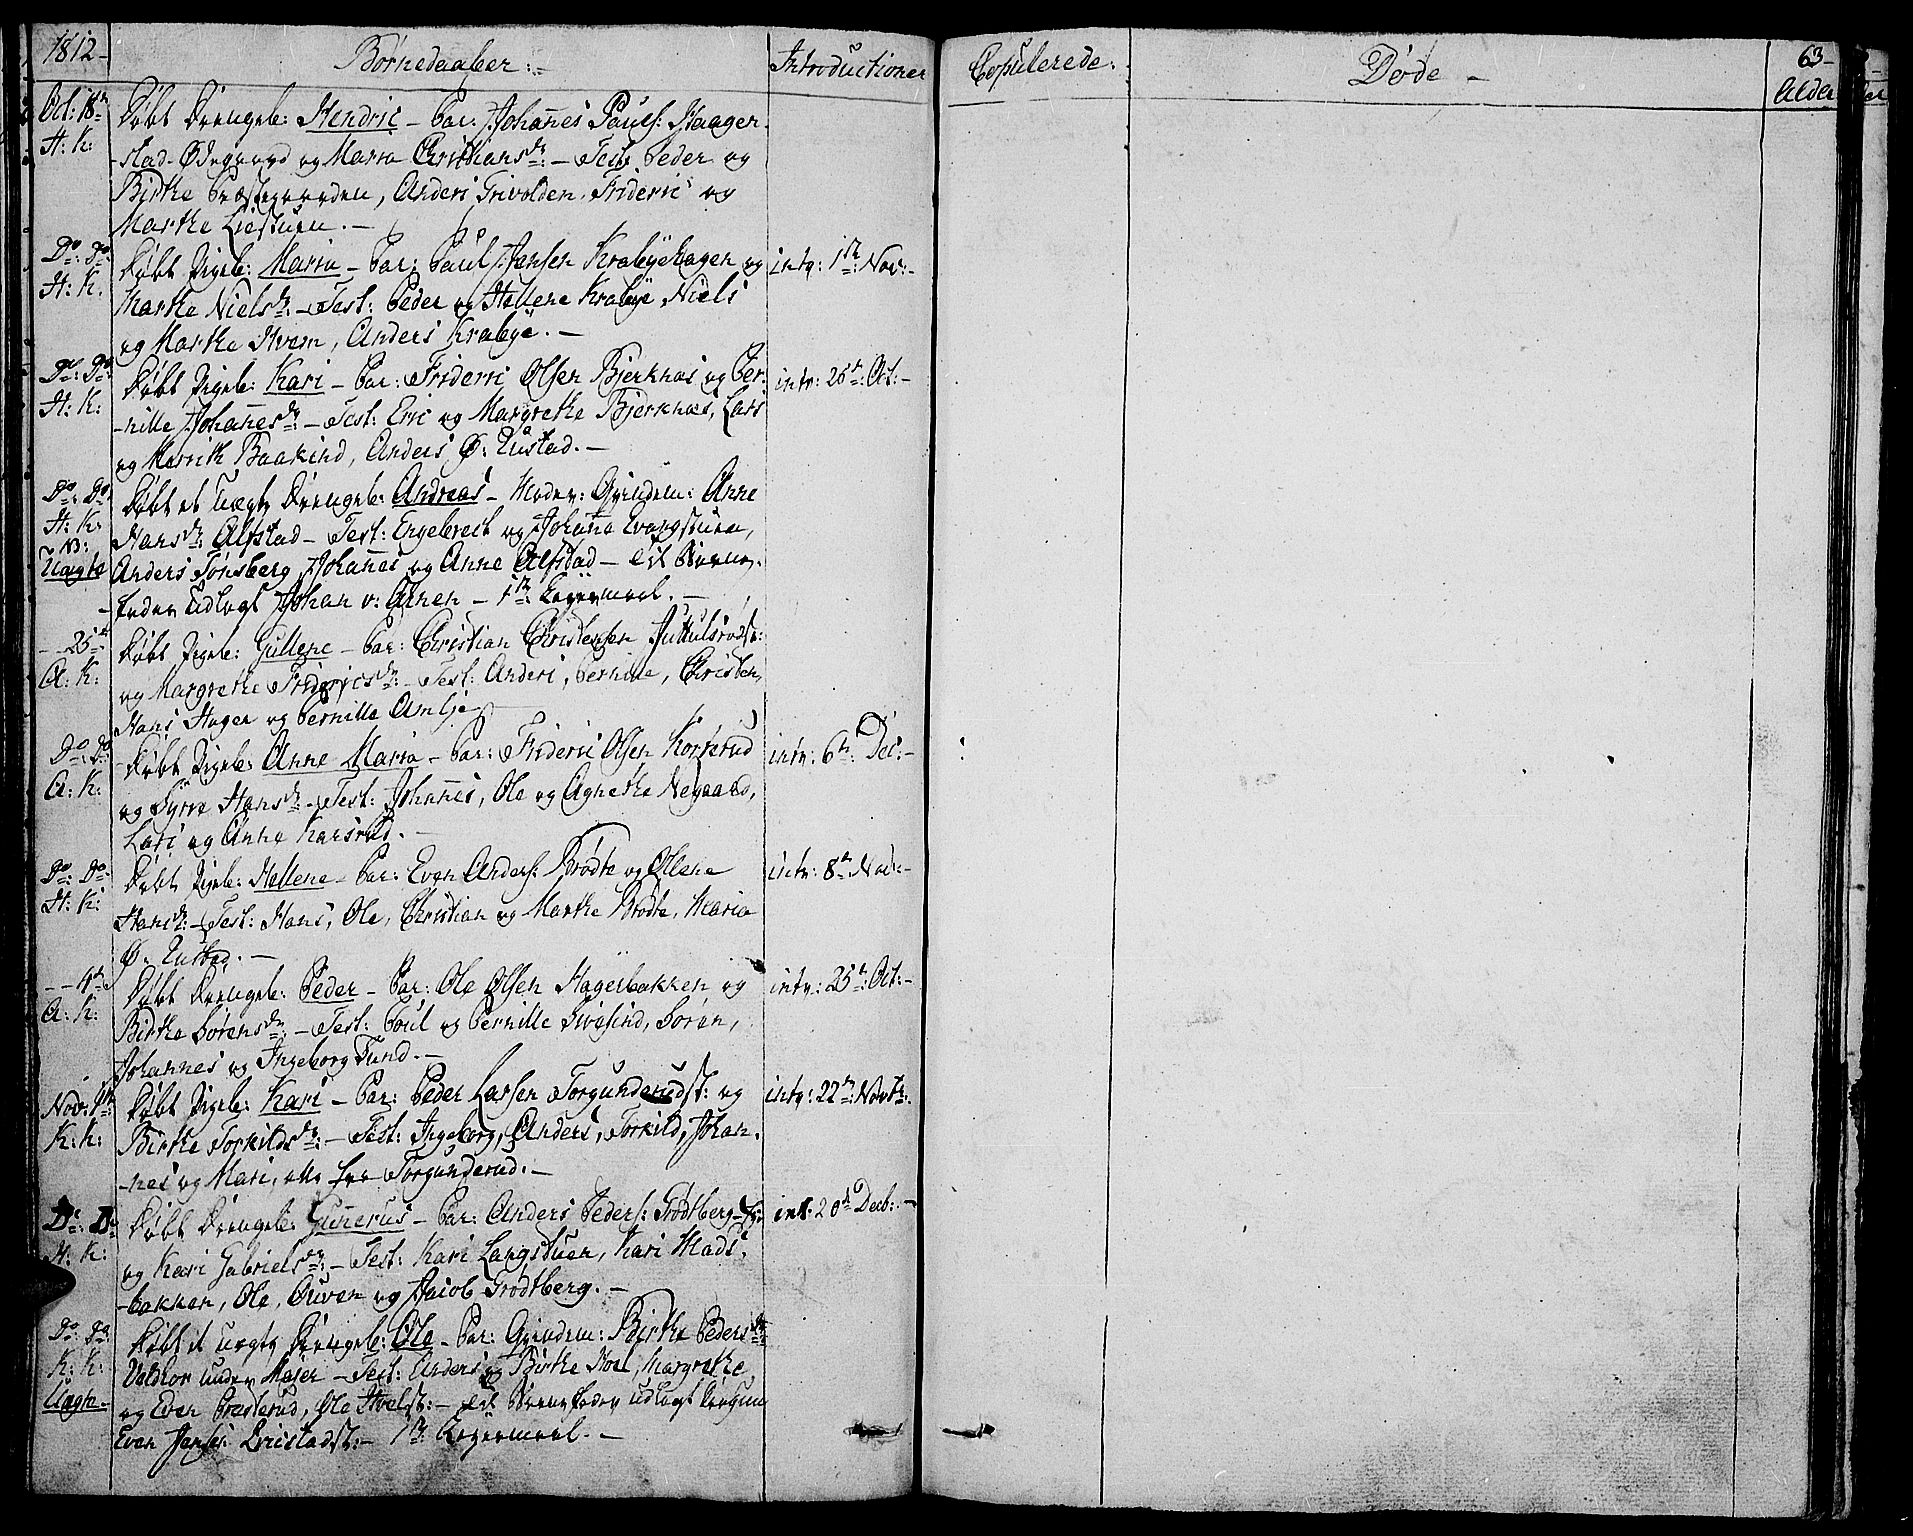 1812-
Børnedaaber:-
Introductioner
Copulerede:
Døde -
63-
Alder
Oct: 18de
H: K:
Døbt Drengeb: Hendric - Par: Johanes Pauls: Haagen-
-stad-Ødegaard og Maria Christiansdr: - Test: Peder og
Birthe Præstegaarden, Anders Frivolden, Frideric og
Marthe Liestuen. -
Do: Do:
H: K:
Døbt Pigeb: Maria - Par: Paul Jensen Krabyehagen og
Marthe Nielsdr: - Test: Peder og Hellene Krabye, Niels
og Marthe Hvem, Anders Krabye. -
intr: 1te Nov: -
Do: Do:
H: K:
Døbt Pigeb: Kari - Par: Frideric Olsen Bjerknæs og Per-
-nille Johanesdr: - Test: Eric og Margrethe Bjerknæs, Lars
og Marith Baakind, Anders Ø: Rustad. -
intr: 25de: Oct: -
Do: Do:
H: K:
NB:
Uægte
Døbt et uægte Drengeb: Andreas - Moder: Qvindem: Anne
Hansdr: Alfstad - Test: Engebrect og Johana Evangstuen,
Anders Tønsberg, Johanes og Anne Alfstad - til Barne-
-fader udlagt Johan v: Ahnen - 1te: Leyermaal. -
- - 25de
A: K:
Døbt Pigeb: Gullene - Par: Christian Christensen Juttulsrødst:
og Margrethe Fridericsdr: - Test: Anders, Pernille, Christen,
Hans Hager og Pernille Amlje
Do: Do
A: K:
Døbt Pigeb: Anne Maria - Par: Frideric Olsen Korsrud
og Syrve Hansdr: - Test: Johannes, Ole og Agnethe Negaard,
Lars og Anne Karsrud. -
intr: 6te: Dec: -
Do: Do:
H: K:
Døbt Pigeb: Hellene - Par: Even Anders: Brødte og Ollena
Hansdr: - Test: Hans, Ole, Christian og Marthe Brødte, Maria
Ø: Rustad. -
intr: 8de Nov: -
- - 4de
A: K:
Døbt Drengeb: Peder - Par: Ole Olsen Hagerbakken og
Birthe Sørensdr: - Test: Poul og Pernille Sivesind, Søren,
Johannes og Ingeborg Tund. -
intr: 25de: Oct: -
Nov: 1te:
K: K:
Døbt Pigeb: Kari - Par: Peder Larsen Torgunderudst: og
Birthe Torkildsdr: - Test: Ingeborg, Anders, Torkild, Johan-
-nes og Mari, alle fra Torgunderud. -
intr: 22de: Novbr:
Do: Do
H: K:
Døbt Drengeb: Gunerus - Par: Anders Peders: Grødtberg-
og Kari Gabrielsdr: - Test: Kari Langstuen, Kari Mads-
-bakken, Ole, Ouven og Jacob Grødtberg. -
int: 20de Decb: -
Do: Do:
K: K:
Uægte -
Døbt et uægte Drengeb: Ole - Par: Qvindem: Birthe Pedersdr:
Valdhor under Majer - Test: Anders og Birthe Hoel, Margrethe
og Even Præsterud, Ole Hoelst: - til Barnefader udlagt
Even Jenss: Ericstadst: - 1te: Leyermaal. -